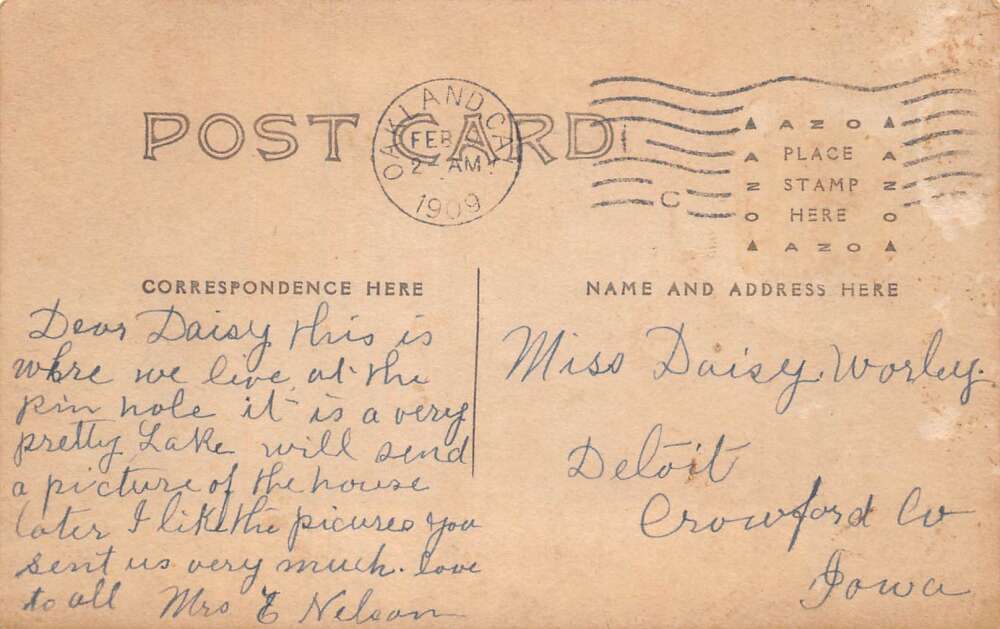 POST CARD
OAKLAND, CAL
FEB
2- AM
1909
C
AZO
PLACE
STAMP
HERE
AZO
AZO
AZO
CORRESPONDENCE HERE
NAME AND ADDRESS HERE
Dear Daisy this is
where we live, at the
pin hole it is a very
pretty Lake will send
a picture of the house
later I like the picures you
sent us very much. love
to all Mrs E Nelson
Miss Daisy Worley.
Deloit
Crowford Co
Iowa